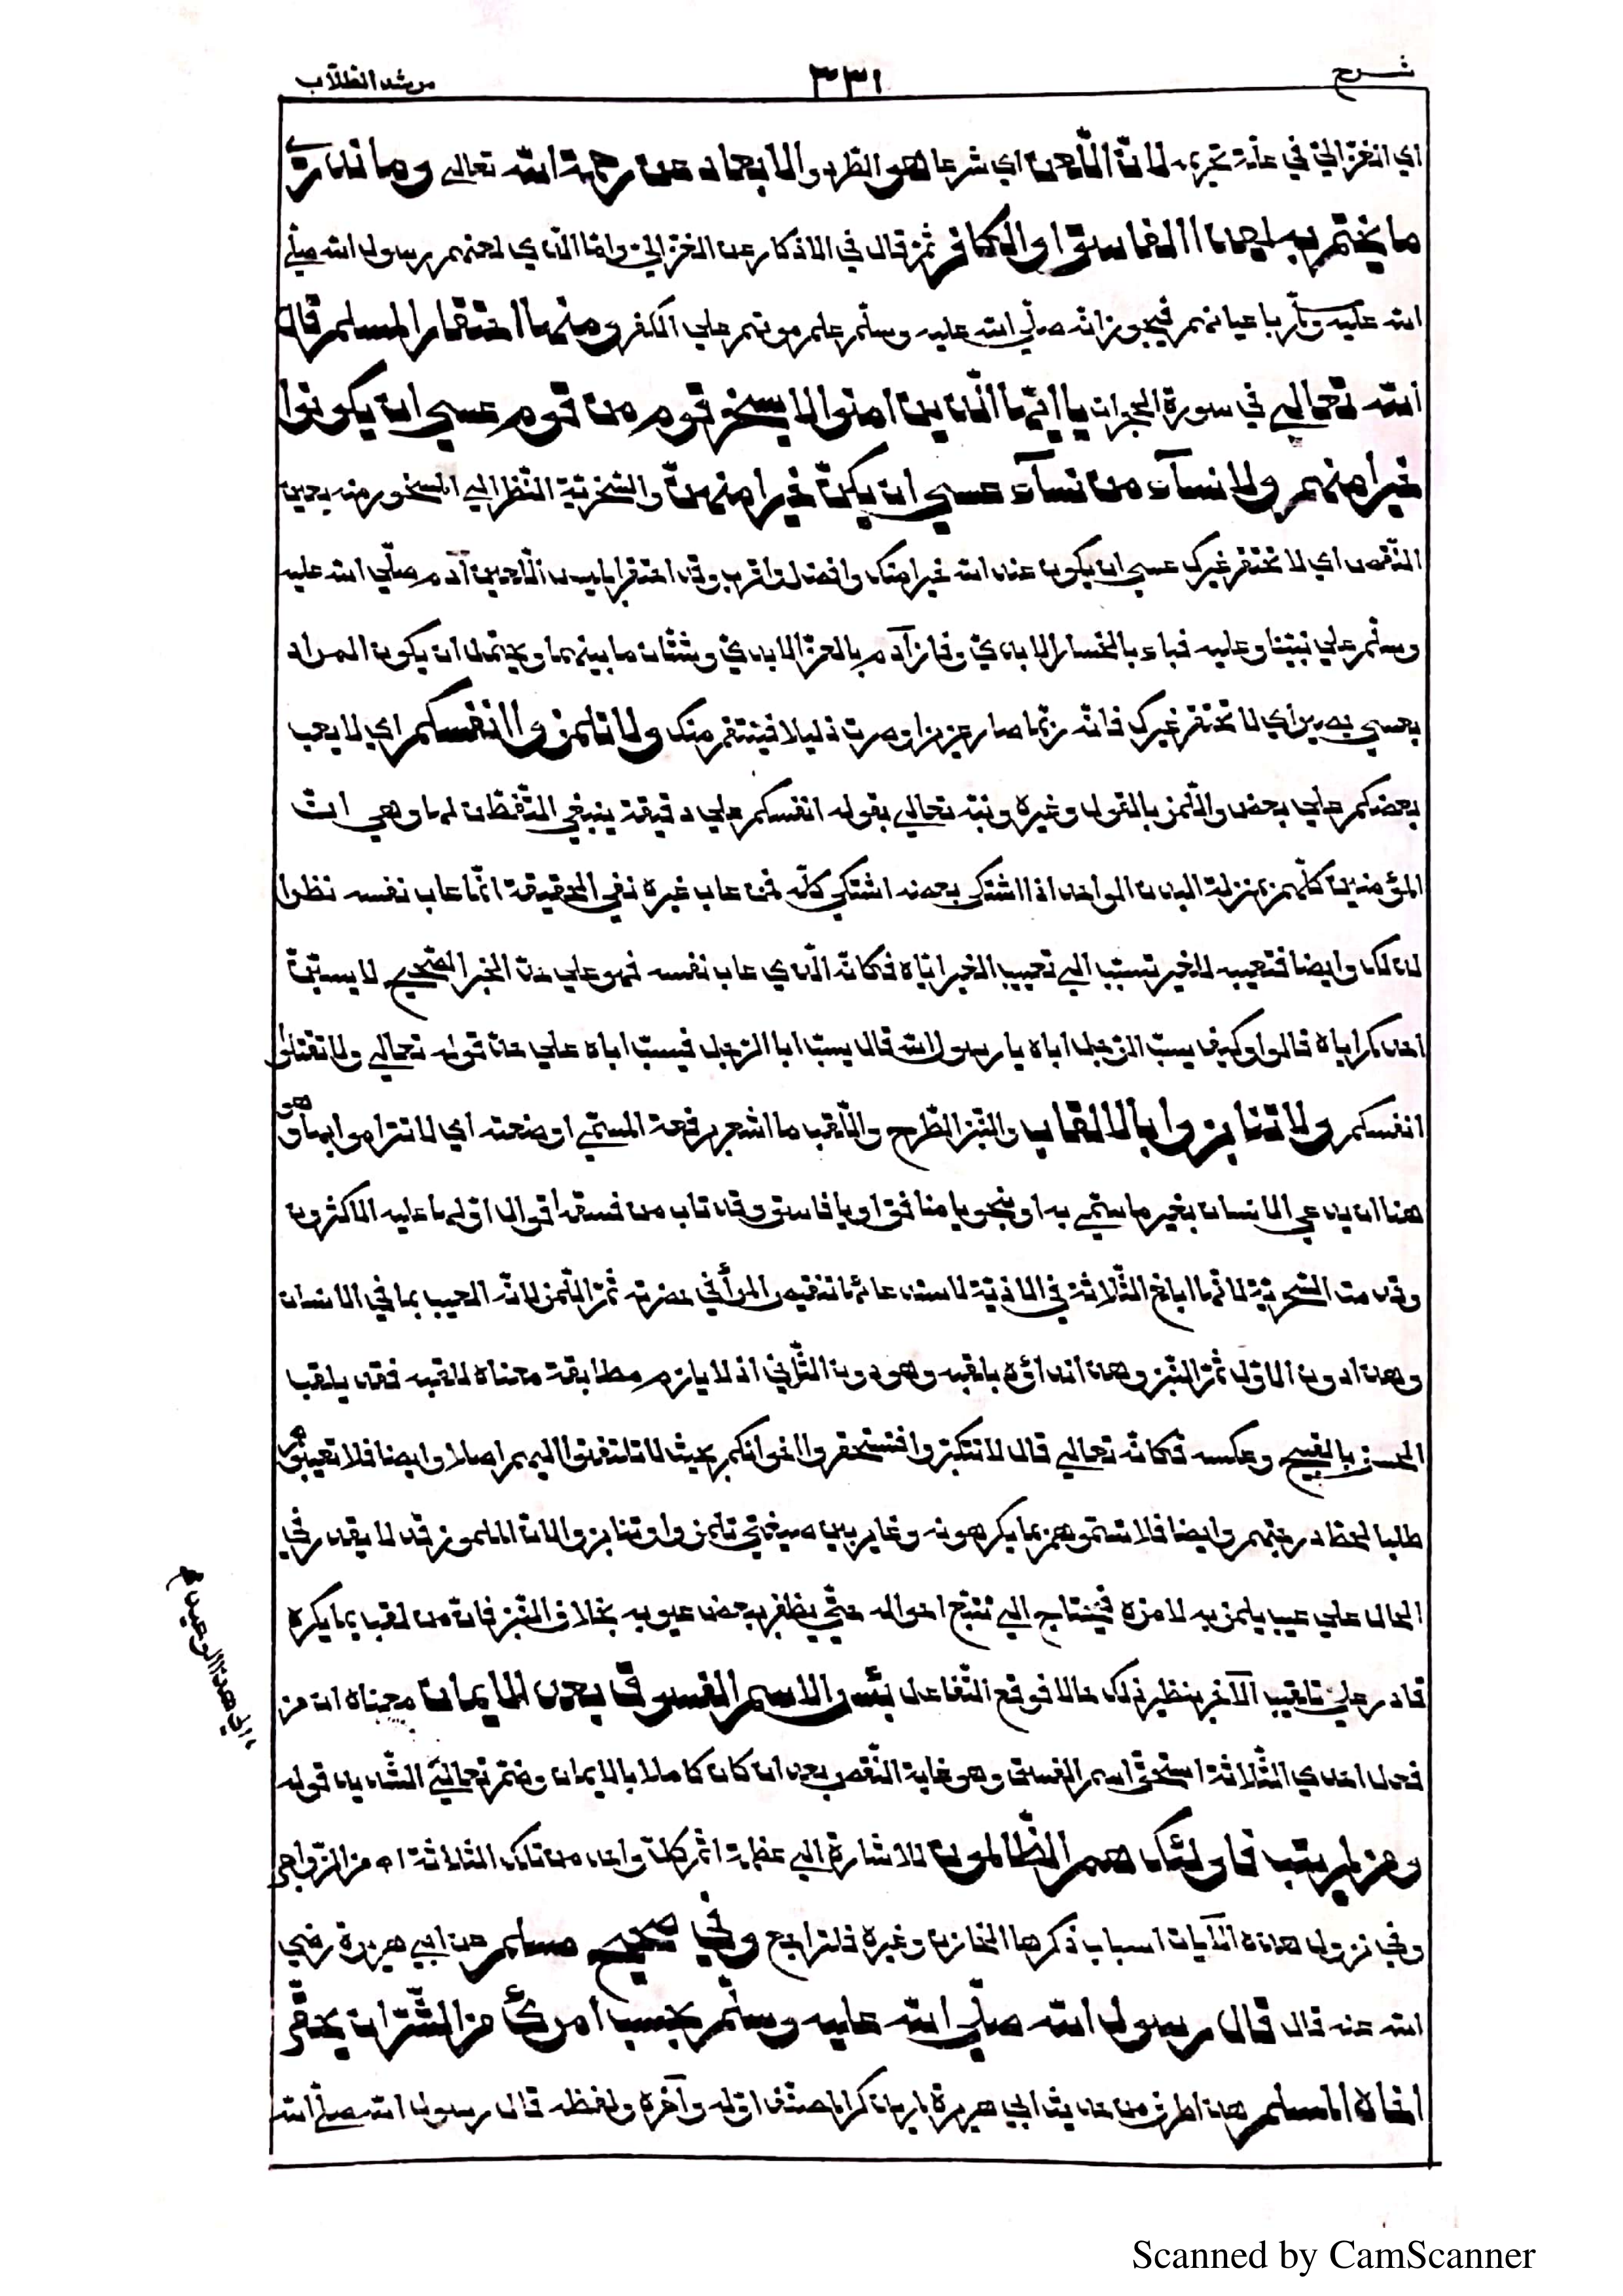 شرح
٣٣١
مرشد الطلّاب
اي الغزاليّ في علّة تحريمه لانّ اللّعن اي شرعا هو الطّرد والابعاد عن رحمة الله تعالى وما ندري
ما يختم به لهذا الفاسق او الكافر ثمّ قال في الاذكار عن الغزاليّ وامّا الّذي لعنهم رسول الله صلّى
الله عليه وسلّم باعيانهم فيجوز انّه صلّى الله عليه وسلّم علم موتهم على الكفر ومنها احتقار المسلم قال
الله تعالى في سورة الحجرات يا ايّها الّذين امنوا لا يسخر قوم من قوم عسى ان يكونوا
خيرا منهم ولا نسآء من نسآء عسى ان يكنّ خيرا منهنّ والسّخريّة النّظر الى المسخور منه بعين
النّقص اي لا تحتقر غيرك عسى ان يكون عند الله خيرا منك وافضل واقرب وقد احتقر ابليس اللّعين آدم صلّى الله عليه
وسلّم على نبيّنا وعليه فباء بالخسار الابديّ وفاز آدم بالعزّ الابديّ وشتّان ما بينهما ويحتمل ان يكون المراد
بعسى يصير اي لا تحتقر غيرك فانّه ربّما صار عزيزا وصرت ذليلا فينتقم منك ولا تلمزوا انفسكم اي لا يعب
بعضكم على بعض واللّمز بالقول وغيره ونبّه تعالى بقوله انفسكم على دقيقة ينبغي التّفطّن لها وهي انّ
المؤمنين كلّهم بمنزلة البدن الواحد اذا اشتكى بعضه اشتكى كلّه فمن عاب غيره ففي الحقيقة انّما عاب نفسه نظرا
لذلك وايضا فتعييبه للغير تسبّب الى تعييب الغير ايّاه فكانّه الّذي عاب نفسه فهو على حدّ الخبر الصّحيح لا يسبّنّ
احدكم اباه قالوا وكيف يسبّ الرّجل اباه يا رسول الله قال يسبّ ابا الرّجل فيسبّ اباه على حدّ قوله تعالى ولا تقتلوا
انفسكم ولا تنابزوا بالالقاب والنّبز الطّرح واللّقب ما اشعر برفعة المسمّى او ضعته اي لا تتراموا بها وهو
هنا ان يدعى الانسان بغير ما سمّي به او بنحو يا منافق او يا فاسق وقد تاب من فسقه اقوال اوّلها عليه الاكثرون
وقدّمت السّخريّة لانّها ابلغ الثّلاثة في الاذيّة لاستدعائها تنقيص المرأ في حضرته ثمّ اللّمز لانّه العيب بما في الانسان
وهذا دون الاوّل ثمّ النّبز وهذا نداؤه بلقبه وهو دون الثّاني اذ لا يلزم مطابقة معناه للقبه فقد يلقّب
الحسن بالقبيح وعكسه فكانّه تعالى قال لا تتكبّروا فتستحقروا اخوانكم بحيث لا تلتفتوا اليهم اصلا وايضا فلا تعيبوهم
طلبا لحطّ درجتهم وايضا فلا تسمّوهم بما يكرهونه وغاير بين صيغتي تلمزوا وتنابزوا لانّ الملموز قد لا يقدر في
الحال على عيب يلمز به لامزه فيحتاج الى تتبّع احواله حتّى يظفر ببعض عيوبه بخلاف النّبز فانّ من لقّب بما يكره
قادر على تلقيب الآخر بنظير ذلك حالا فوقع التّفاعل بئس الاسم الفسوق بعد الايمان معناه ان من
فعل احدى الثّلاثة استحقّ اسم الفسق وهو غاية النّقص بعد ان كان كاملا بالايمان وضمّ تعالى الشّديد قوله
ومن لم يتب فاولئك هم الظّالمون للاشارة الى عظمة اثم كلّ واحد من تلك الثّلاثة اه من الزّواجر
وفي نزول هذه الآيات اسباب ذكرها الخازن وغيره فلتراجع وفي صحيح مسلم عن ابي هريرة رضي
الله عنه قال قال رسول الله صلّى الله عليه وسلّم بحسب امرئ من الشّرّ ان يحقر
اخاه المسلم هذا طرف من حديث ابي هريرة لم يذكر المصنّف اوّله وآخره ولفظه قال رسول الله صلّى الله
Scanned by CamScanner